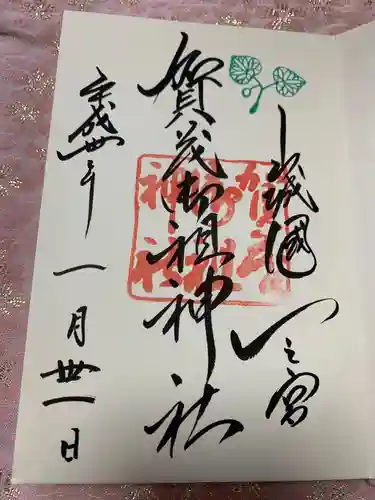 山城國
一之宮
賀茂御祖神社
平成卅一年
一月卅一日